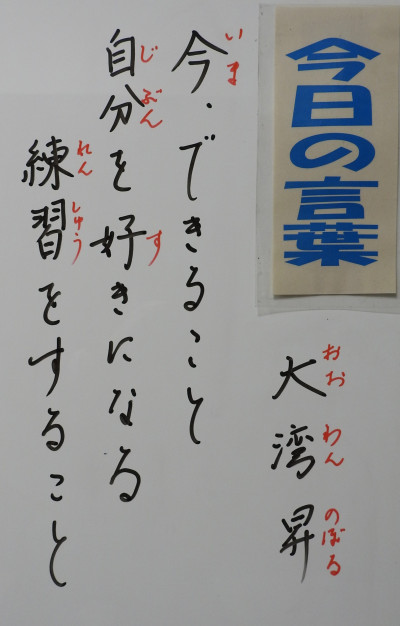 今日の言葉
大湾昇
おお
わん
のぼる
今、できること
いま
自分を好きになる
じ
ぶん
す
練習をすること
れん
しゅう